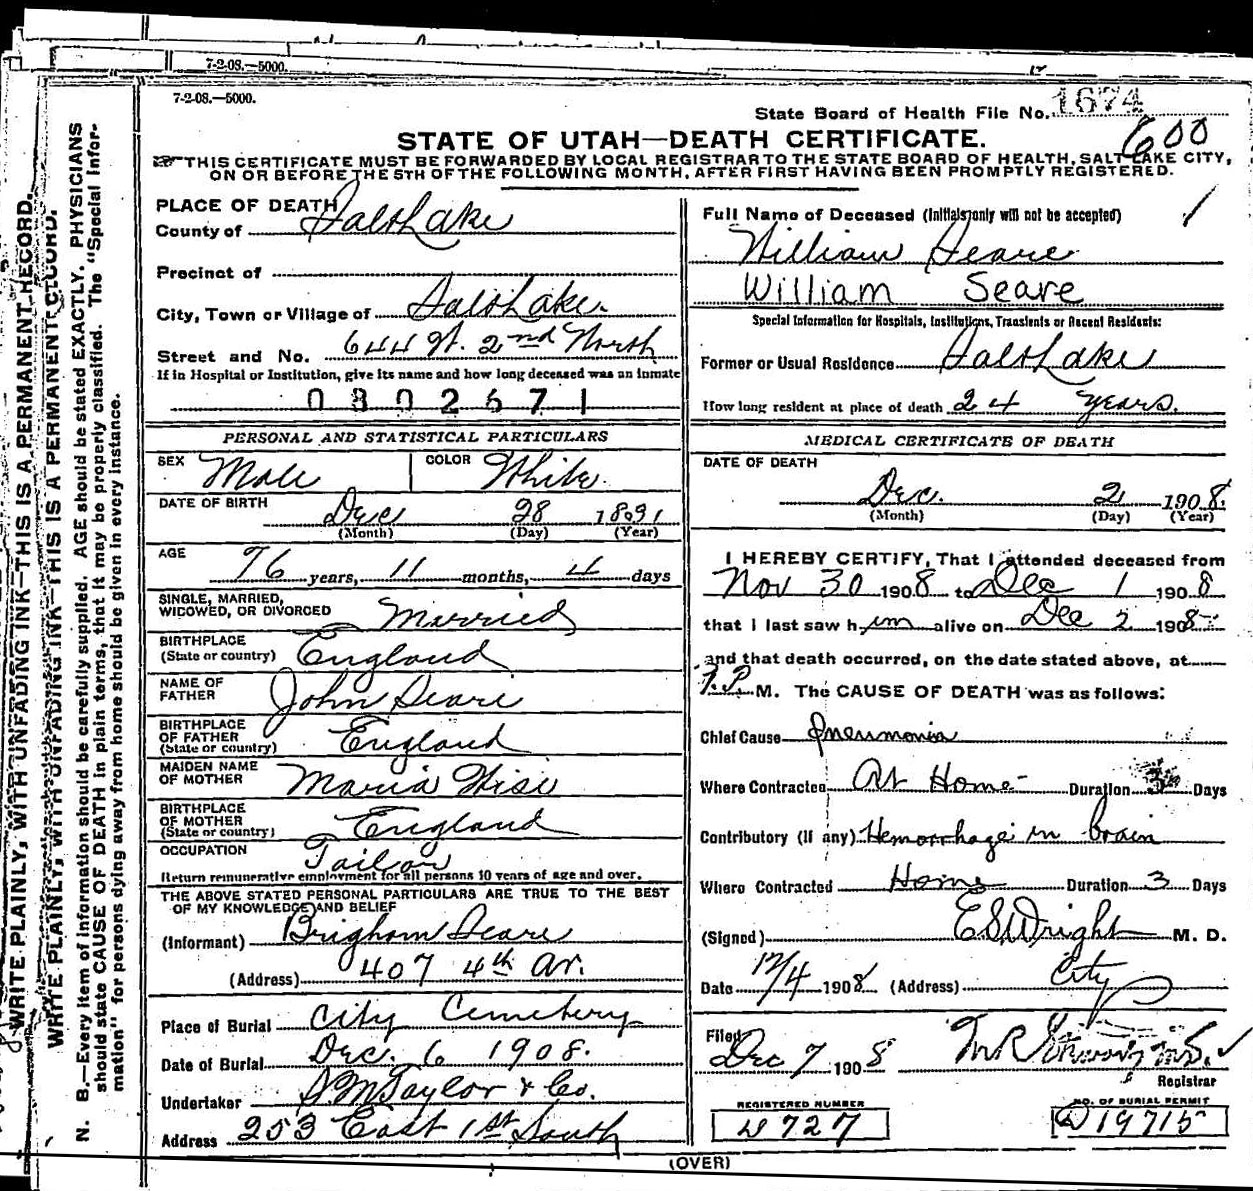 7-2-08.—5000.
7-2-08.—5000.
State Board of Health File No. 1674
600
STATE OF UTAH—DEATH CERTIFICATE.
THIS CERTIFICATE MUST BE FORWARDED BY LOCAL REGISTRAR TO THE STATE BOARD OF HEALTH, SALT LAKE CITY,
ON OR BEFORE THE 5TH OF THE FOLLOWING MONTH, AFTER FIRST HAVING BEEN PROMPTLY REGISTERED.
WRITE PLAINLY, WITH UNFADING INK—THIS IS A PERMANENT RECORD.
WRITE PLAINLY, WITH UNFADING INK—THIS IS A PERMANENT RECORD.
N. B.—Every item of information should be carefully supplied. AGE should be stated EXACTLY. PHYSICIANS
should state CAUSE OF DEATH in plain terms, that it may be properly classified. The "Special Infor-
mation" for persons dying away from home should be given in every instance.
PLACE OF DEATH
County of Salt Lake
Precinct of
City, Town or Village of Salt Lake.
Street and No. 644 W. 2nd North
If in Hospital or Institution, give its name and how long deceased was an inmate
0802671
PERSONAL AND STATISTICAL PARTICULARS
SEX Male COLOR White.
DATE OF BIRTH Dec 28 1831
(Month) (Day) (Year)
AGE 76 years, 11 months, 4 days
SINGLE, MARRIED,
WIDOWED, OR DIVORCED Married
BIRTHPLACE
(State or country) England
NAME OF
FATHER John Seare
BIRTHPLACE
OF FATHER
(State or country) England
MAIDEN NAME
OF MOTHER Maria Wise
BIRTHPLACE
OF MOTHER
(State or country) England
OCCUPATION Tailor
Return remunerative employment for all persons 10 years of age and over.
THE ABOVE STATED PERSONAL PARTICULARS ARE TRUE TO THE BEST
OF MY KNOWLEDGE AND BELIEF
(Informant) Brigham Seare
(Address) 407 4th Av.
Place of Burial City Cemetery
Date of Burial Dec. 6 1908.
Undertaker S M Taylor & Co.
Address 253 East 1st South
Full Name of Deceased (Initials only will not be accepted)
William Seare
William Seare
Special Information for Hospitals, Institutions, Transients or Recent Residents:
Former or Usual Residence Salt Lake
How long resident at place of death 24 years.
MEDICAL CERTIFICATE OF DEATH
DATE OF DEATH
Dec. 2 1908.
(Month) (Day) (Year)
I HEREBY CERTIFY, That I attended deceased from
Nov 30 1908 to Dec 1 1908
that I last saw him alive on Dec 2 1908
and that death occurred, on the date stated above, at
M. The CAUSE OF DEATH was as follows:
Chief Cause Pneumonia
Where Contracted At Home Duration 3 Days
Contributory (if any) Hemorrhage in brain
Where Contracted Home Duration 3 Days
(Signed) E S Wright M. D.
Date 12/4 1908 (Address) City
Filed
Dec 7 1908
Registrar
REGISTERED NUMBER NO. OF BURIAL PERMIT
W 727 19715
(OVER)